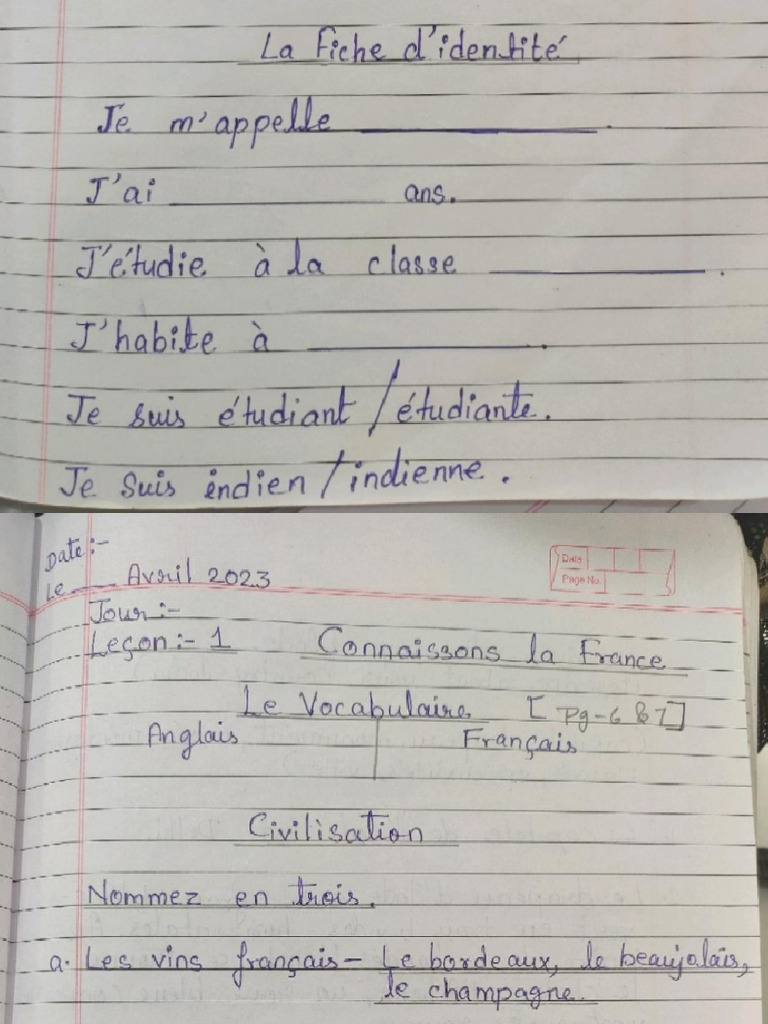 La fiche d'identité
Je m'appelle ________.
J'ai ________ ans.
J'étudie à la classe ________.
J'habite à ________.
Je suis étudiant / étudiante.
Je suis indien / indienne.
Date:-
Le ___ Avril 2023
Date
Page No.
Jour:-
Leçon:- 1 Connaissons la France
Le Vocabulaire [Pg-6 & 7]
Anglais Français
Civilisation
Nommez en trois.
a. Les vins français - Le bordeaux, le beaujolais,
le champagne.